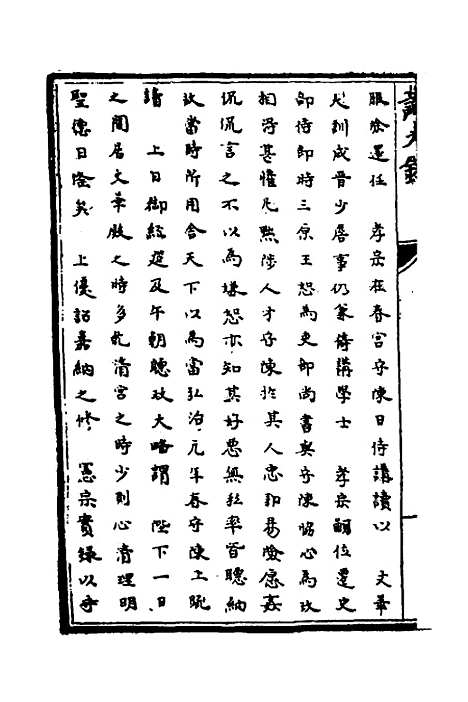 服除還任　孝宗在春宮守陳日侍講讀以　文華
大訓成晋少詹事仍兼侍講學士　孝宗嗣位遷吏
部侍郎時三原王恕爲吏部尚書與守陳協心爲政
相得甚懽凡黜陟人才守陳於其人忠邪易險慝嘉
侃侃言之不以爲嫌恕亦知其好惡無私率皆聽納
故當時所用舍天下以爲當弘治元年春守陳上疏
請　上日御經筵及午朝聽政大略謂　陛下一日
之間居文華殿之時多處清宮之時少則心清理明
聖德日隆矣　上優詔嘉納之修　憲宗實錄以守